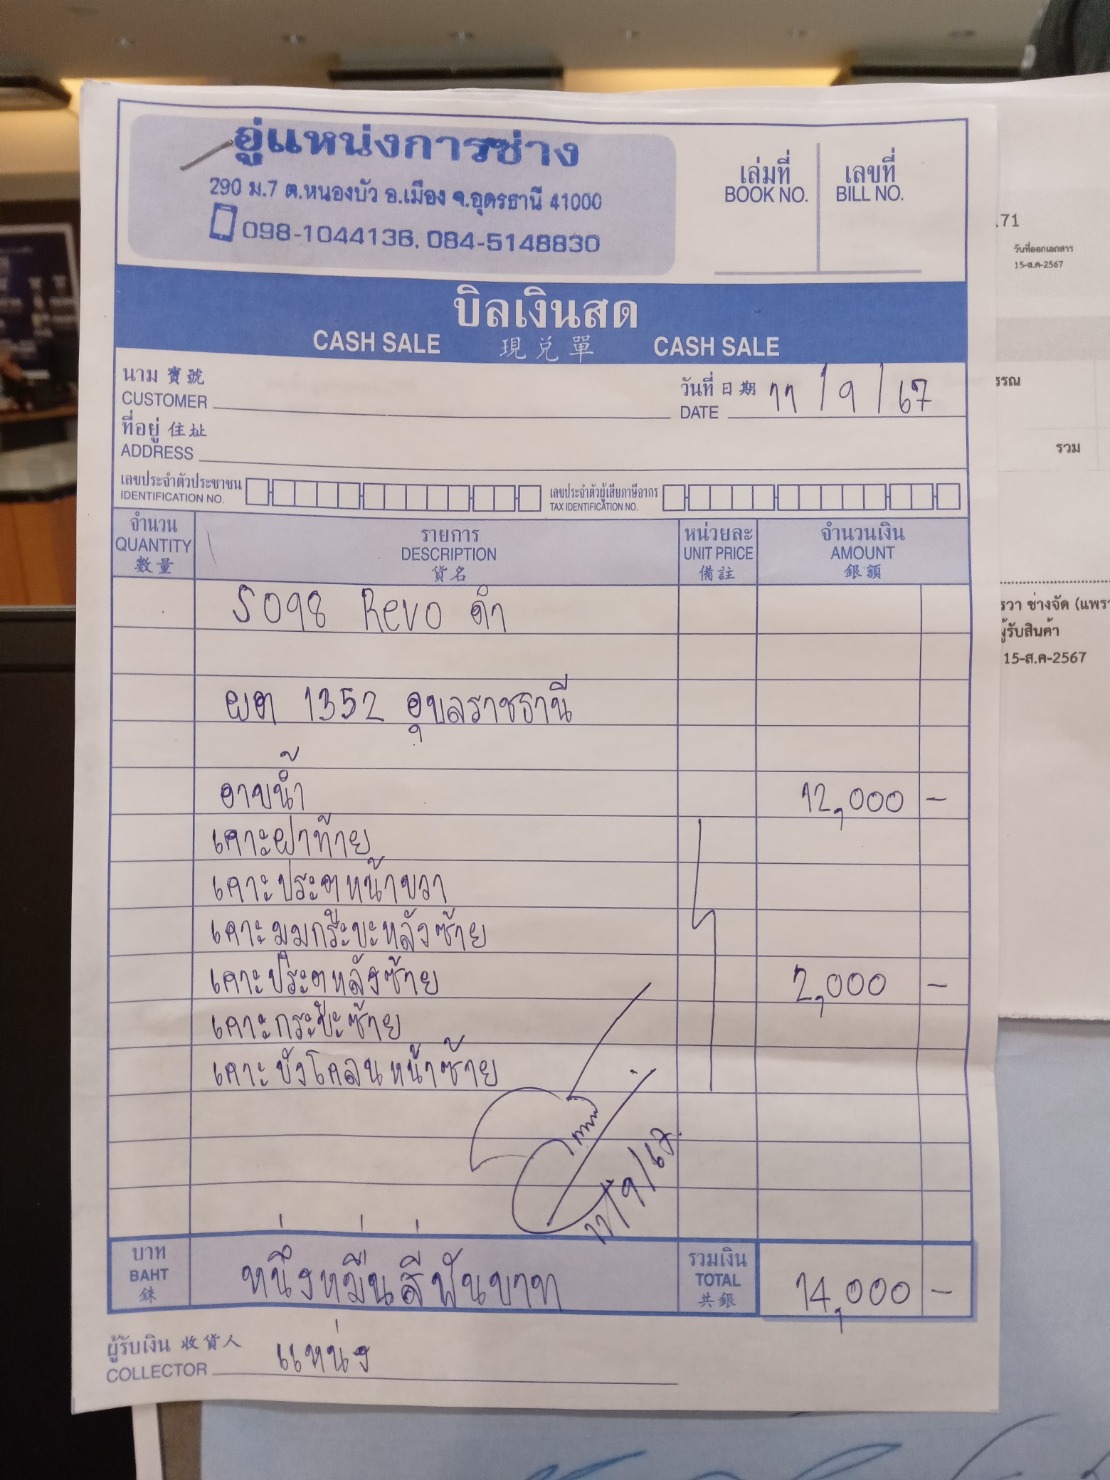 อู่แหน่งการช่าง
290 ม.7 ต.หนองบัว อ.เมือง จ.อุดรธานี 41000
098-1044136, 084-5148830
เล่มที่ เลขที่
BOOK NO. BILL NO.
บิลเงินสด
CASH SALE 現兌單 CASH SALE
นาม 寶號
CUSTOMER
วันที่ 日期 11/9/67
DATE
ที่อยู่ 住址
ADDRESS
เลขประจำตัวประชาชน
IDENTIFICATION NO.
เลขประจำตัวผู้เสียภาษีอากร
TAX IDENTIFICATION NO.
จำนวน รายการ หน่วยละ จำนวนเงิน
QUANTITY DESCRIPTION UNIT PRICE AMOUNT
數量 貨名 備註 銀額
5098 Revo ดำ
ผต 1352 อุบลราชธานี
อาบน้ำ 12,000 -
เคาะฝาท้าย
เคาะประตูหน้าขวา
เคาะมุมกระบะหลังซ้าย
เคาะประตูหลังซ้าย 2,000 -
เคาะกระบะซ้าย
เคาะบังโคลนหน้าซ้าย
11/9/67
บาท
BAHT
銖
หนึ่งหมื่นสี่พันบาท
รวมเงิน
TOTAL
共銀
14,000 -
ผู้รับเงิน 收貨人
COLLECTOR แหน่ง
.71
วันที่ออกเอกสาร
15-ส.ค-2567
รรณ
รวม
รวา ช่างจัด (แพรว
ผู้รับสินค้า
15-ส.ค-2567